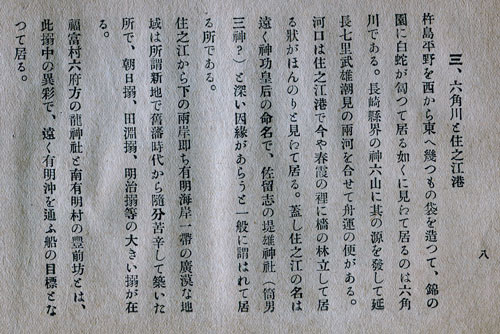 三、六角川と住之江港
杵島平野を西から東へ幾つもの袋を造つて、錦の
園に白蛇が匐つて居る如くに見わて居るのは六角
川である。長崎縣界の神六山に其の源を發して延
長七里武雄潮見の兩河を合せて舟運の便がある。
河口は住之江港で今や春霞の裡に檣の林立して居
る狀がほんのりと見わて居る。蓋し住之江の名は
遠く神功皇后の命名で、佐留志の堤雄神社（筒男
三神？）と深い因緣があらうと一般に謂はれて居
る所である。
住之江から下の兩岸即ち有明海岸一帶の廣漠な地
域は所謂新地で舊藩時代から隨分苦辛して築いた
所で、朝日搦、田淵搦、明治搦等の大きい搦が在
る。
福富村六府方の龍神社と南有明村の豐前坊とは、
此搦中の異彩で、遠く有明沖を通ふ船の目標とな
つて居る。
八